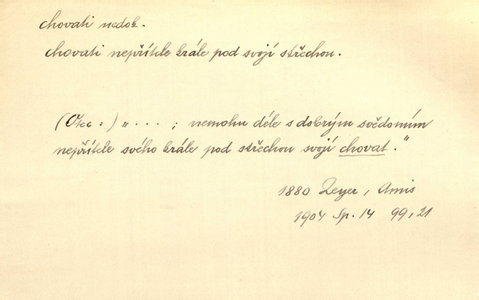 chovati nedok.
chovati nepřítele krále pod svojí střechou.
(Otec:) „ . . . ; nemohu déle s dobrým svědomím
nepřítele svého krále pod střechou svojí chovat."
1880 Zeyer, Amis
1904 Sp. 14 99,21